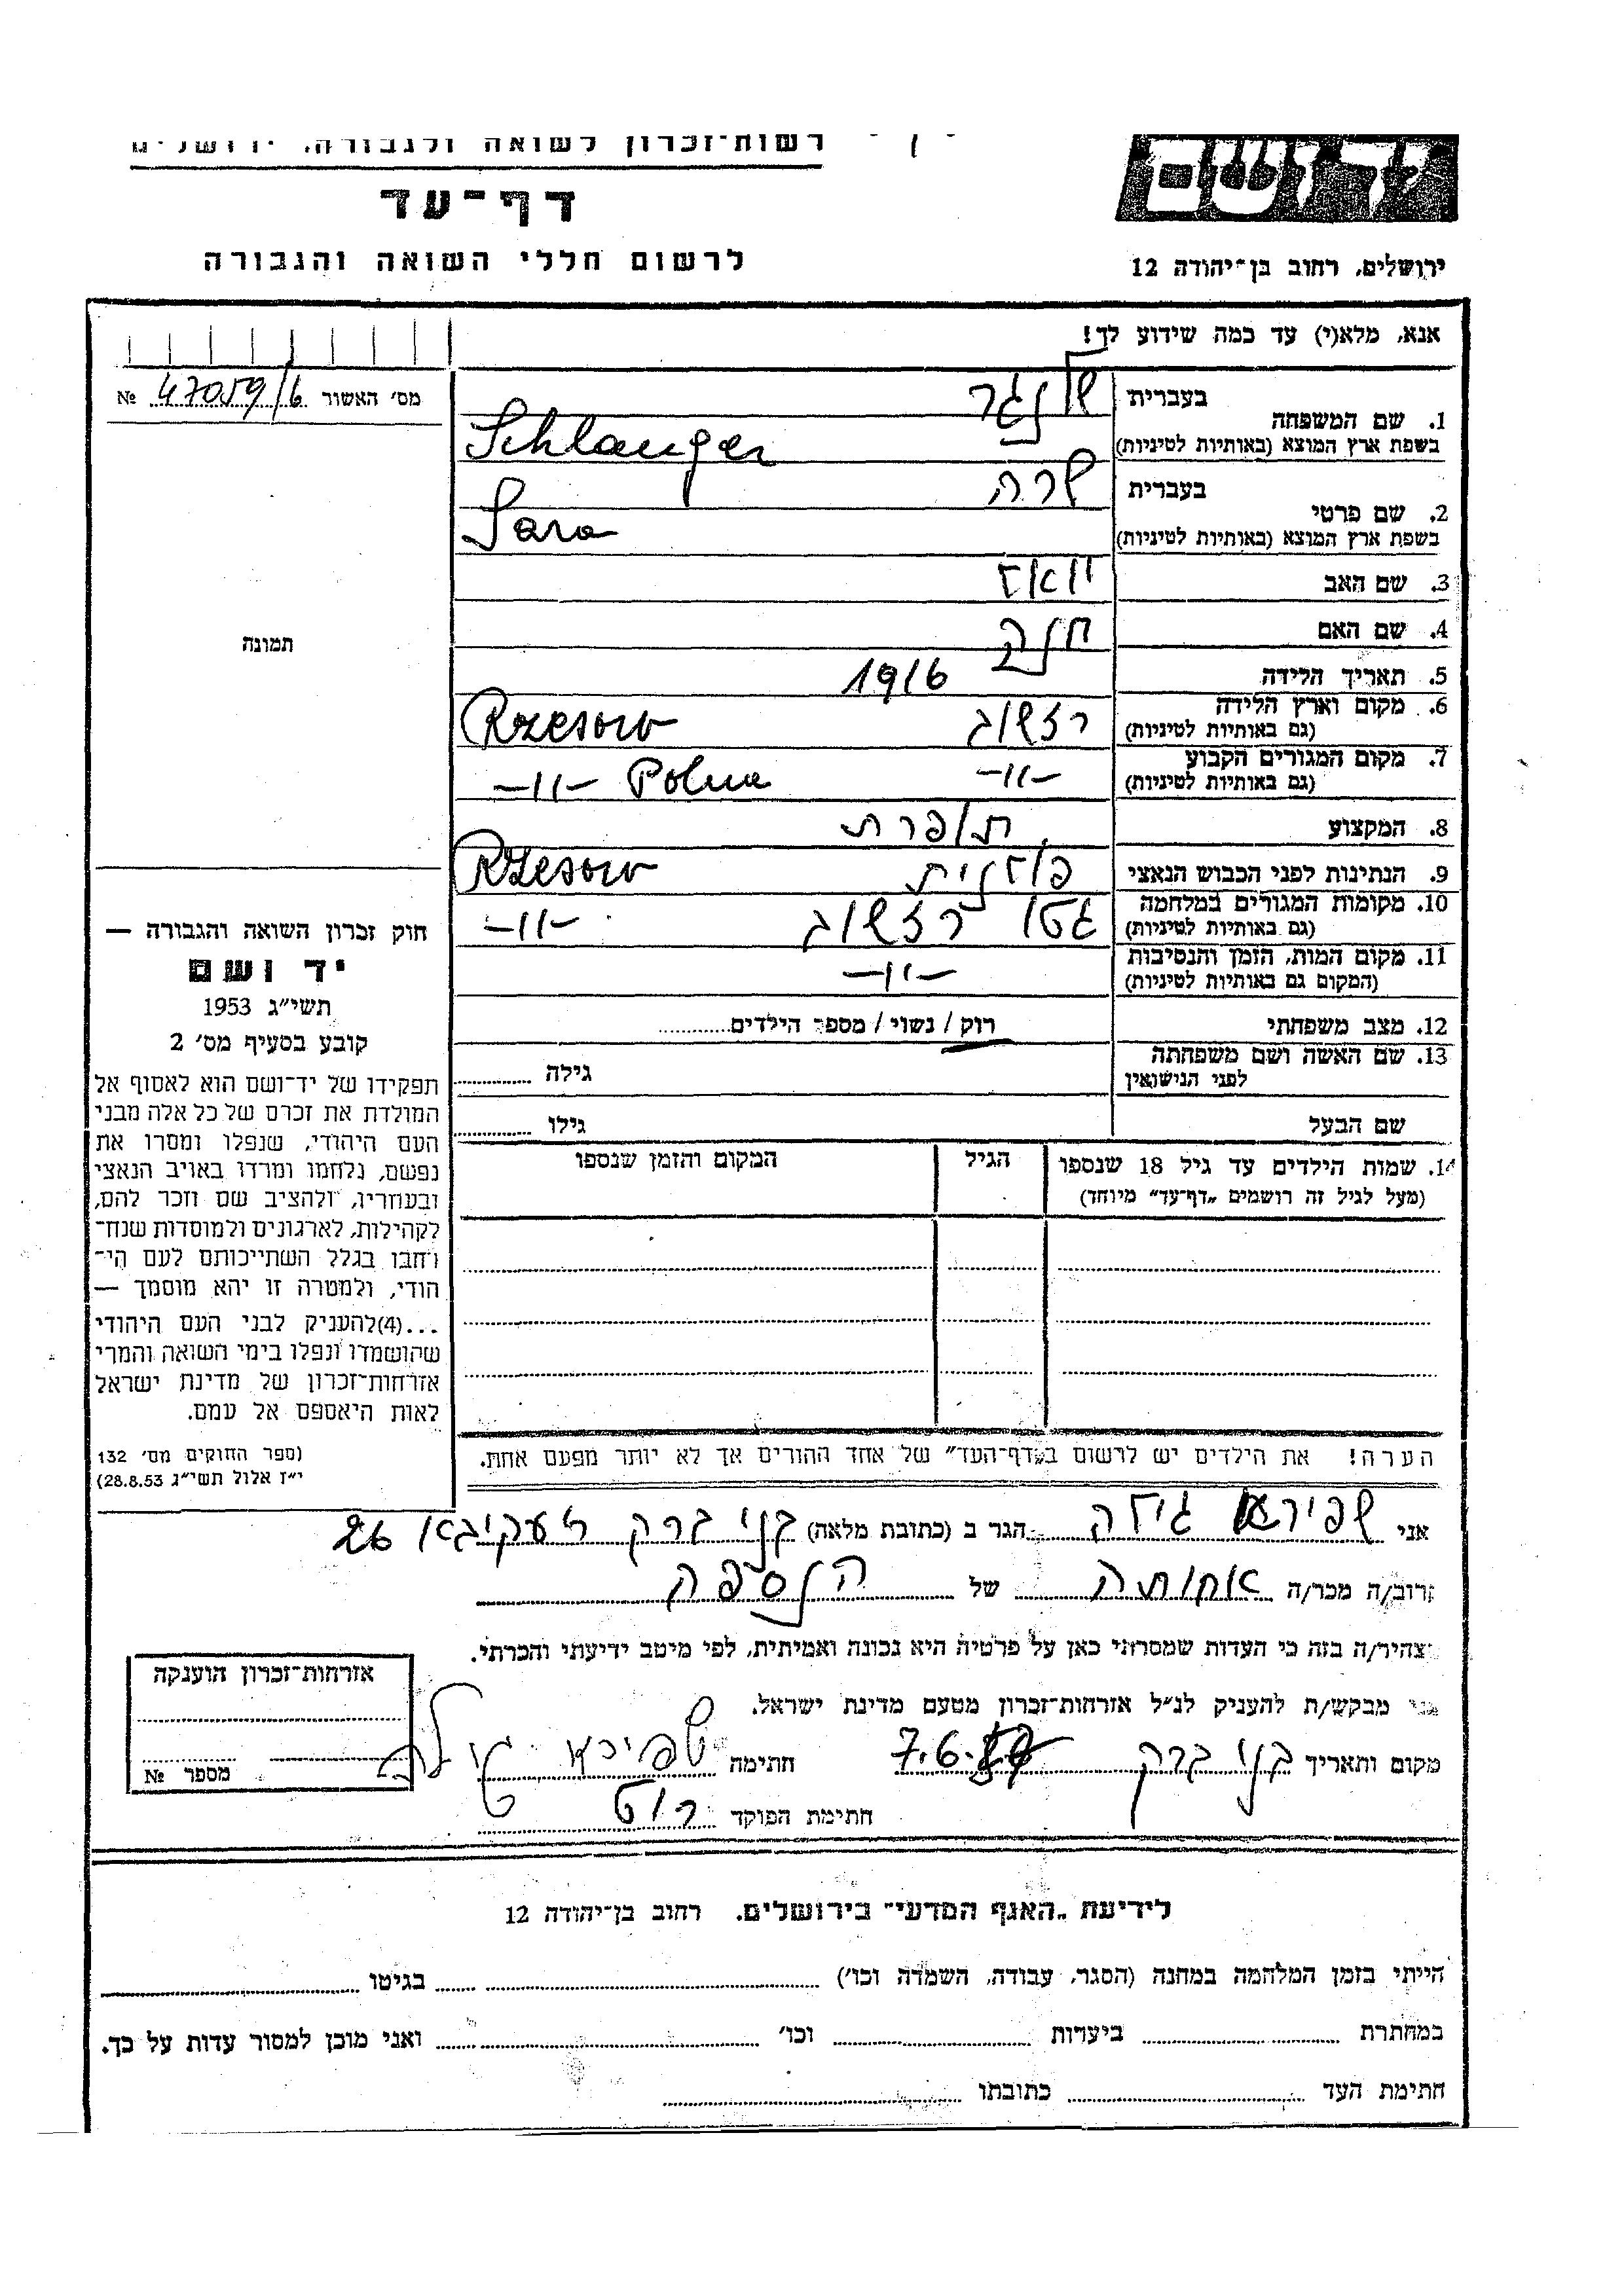 רשות־זכרון לשואה ולגבורה, ירושלים
יד ושם
דף־עד
לרשום חללי השואה והגבורה
ירושלים, רחוב בן־יהודה 12
אנא, מלא(י) עד כמה שידוע לך!
מס׳ האשור 47059/6 №
1. שם המשפחה בעברית שלנגר
בשפת ארץ המוצא (באותיות לטיניות) Schlanger
2. שם פרטי בעברית שרה
בשפת ארץ המוצא (באותיות לטיניות) Sara
3. שם האב
4. שם האם חנה
תמונה
5. תאריך הלידה 1916
6. מקום וארץ הלידה רזשוב Rzesow
(גם באותיות לטיניות)
7. מקום המגורים הקבוע -״- -״- Polna
(גם באותיות לטיניות)
8. המקצוע תופרת
9. הנתינות לפני הכבוש הנאצי פולנית Rzesow
10. מקומות המגורים במלחמה גטו רזשוב -״-
(גם באותיות לטיניות)
11. מקום המות, הזמן והנסיבות -״-
(המקום גם באותיות לטיניות)
12. מצב משפחתי רוק / נשוי / מספר הילדים
13. שם האשה ושם משפחתה גילה
לפני הנישואין
שם הבעל גילו
14. שמות הילדים עד גיל 18 שנספו הגיל המקום והזמן שנספו
(מעל לגיל זה רושמים „דף־עד״ מיוחד)
הערה! את הילדים יש לרשום ב„דף־העד״ של אחד ההורים אך לא יותר מפעם אחת.
חוק זכרון השואה והגבורה —
יד ושם
תשי״ג 1953
קובע בסעיף מס׳ 2
תפקידו של יד־ושם הוא לאסוף אל
המולדת את זכרם של כל אלה מבני
העם היהודי, שנפלו ומסרו את
נפשם, נלחמו ומרדו באויב הנאצי
ובעוזריו, ולהציב שם וזכר להם,
לקהילות, לארגונים ולמוסדות שנח־
רחבו בגלל השתייכותם לעם הי־
הודי, ולמטרה זו יהא מוסמך —
...(4)להעניק לבני העם היהודי
שהושמדו ונפלו בימי השואה והמרי
אזרחות־זכרון של מדינת ישראל
לאות היאספם אל עמם.
(ספר החוקים מס׳ 132
י״ז אלול תשי״ג 28.8.53)
אני שפירא גילה הגר ב (כתובת מלאה) בני ברק ר.עקיבא 26
קרוב/ה מכר/ה אחותה של הנספה
מצהיר/ה בזה כי העדות שמסרתי כאן על פרטיה היא נכונה ואמיתית, לפי מיטב ידיעתי והכרתי.
אני מבקש/ת להעניק לנ״ל אזרחות־זכרון מטעם מדינת ישראל.
מקום ותאריך בני ברק 7.6. חתימה שפירא גילה
חתימת הפוקד
אזרחות־זכרון הוענקה
מספר №
לידיעת „האגף המדעי״ בירושלים, רחוב בן־יהודה 12
הייתי בזמן המלחמה במחנה (הסגר, עבודה, השמדה וכו׳) בגיטו
במחתרת ביערות וכו׳ ואני מוכן למסור עדות על כך.
חתימת העד כתובתו